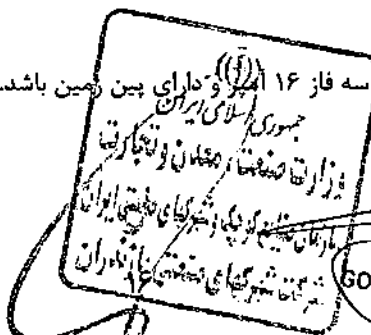 سه فاز ۱۶ آمپر و دارای پین زمین باشد.
جمهوری اسلامی ایران
وزارت صنعت، معدن و تجارت
سازمان صنایع کوچک و شهرکهای صنعتی ایران
شرکت شهرکهای صنعتی مازندران
GO